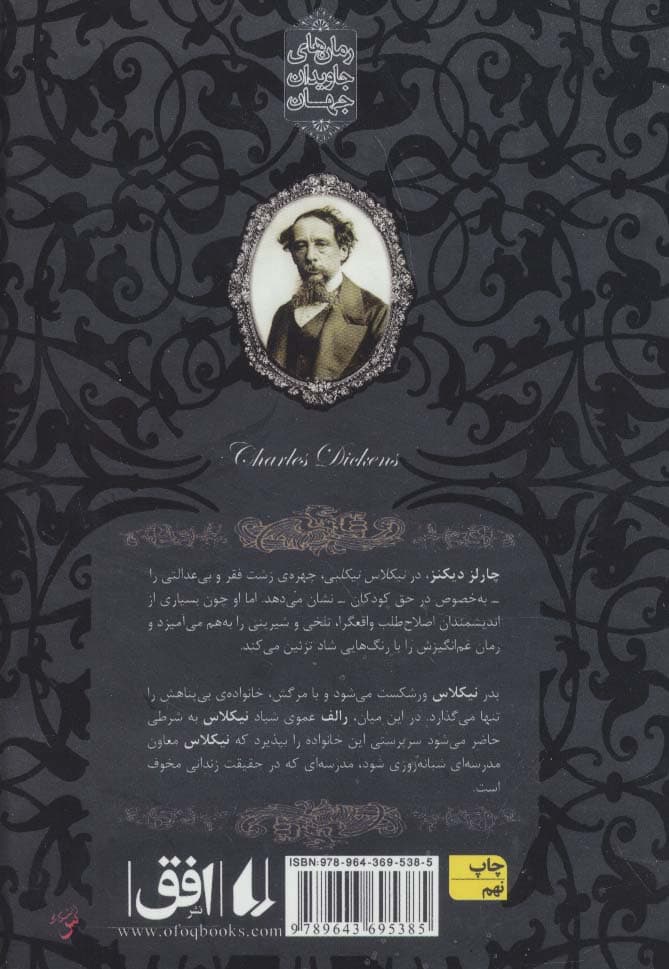 رمان‌های
جاویدان
جهان
Charles Dickens
چارلز دیکنز، در نیکلاس نیکلبی، چهره‌ی زشت فقر و بی‌عدالتی را
ـ به‌خصوص در حق کودکان ـ نشان می‌دهد. اما او چون بسیاری از
اندیشمندان اصلاح‌طلب واقعگرا، تلخی و شیرینی را به‌هم می‌آمیزد و
رمان غم‌انگیزش را با رنگ‌هایی شاد تزئین می‌کند.
پدر نیکلاس ورشکست می‌شود و با مرگش، خانواده‌ی بی‌پناهش را
تنها می‌گذارد. در این میان، رالف عموی شیاد نیکلاس به شرطی
حاضر می‌شود سرپرستی این خانواده را بپذیرد که نیکلاس معاون
مدرسه‌ای شبانه‌روزی شود، مدرسه‌ای که در حقیقت زندانی مخوف
است.
نشر افق
www.ofoqbooks.com
ISBN:978-964-369-538-5
9 789643 695385
چاپ
نهم